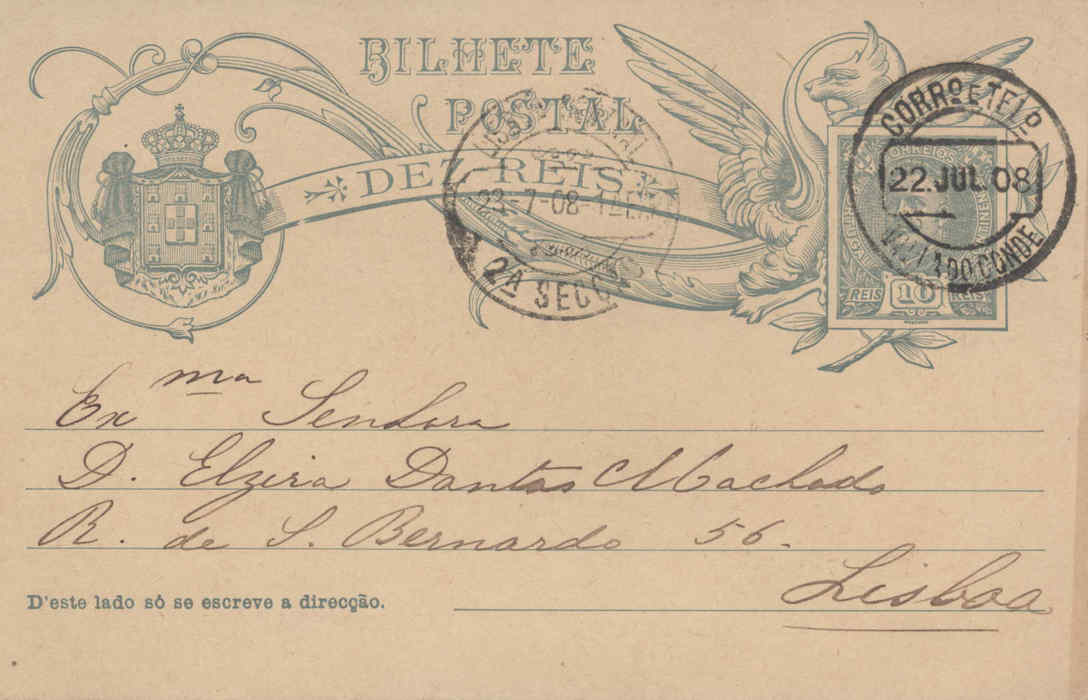 BILHETE
POSTAL
DEZ REIS
CORRO E TELO
22. JUL. 08
VILLA DO CONDE
23-7-08
2A SECÇ
CORREIOS
REIS 10 REIS
Exma Senhora
D. Elzira Dantas Machado
R. de S. Bernardo 56.
Lisboa
D'este lado só se escreve a direcção.